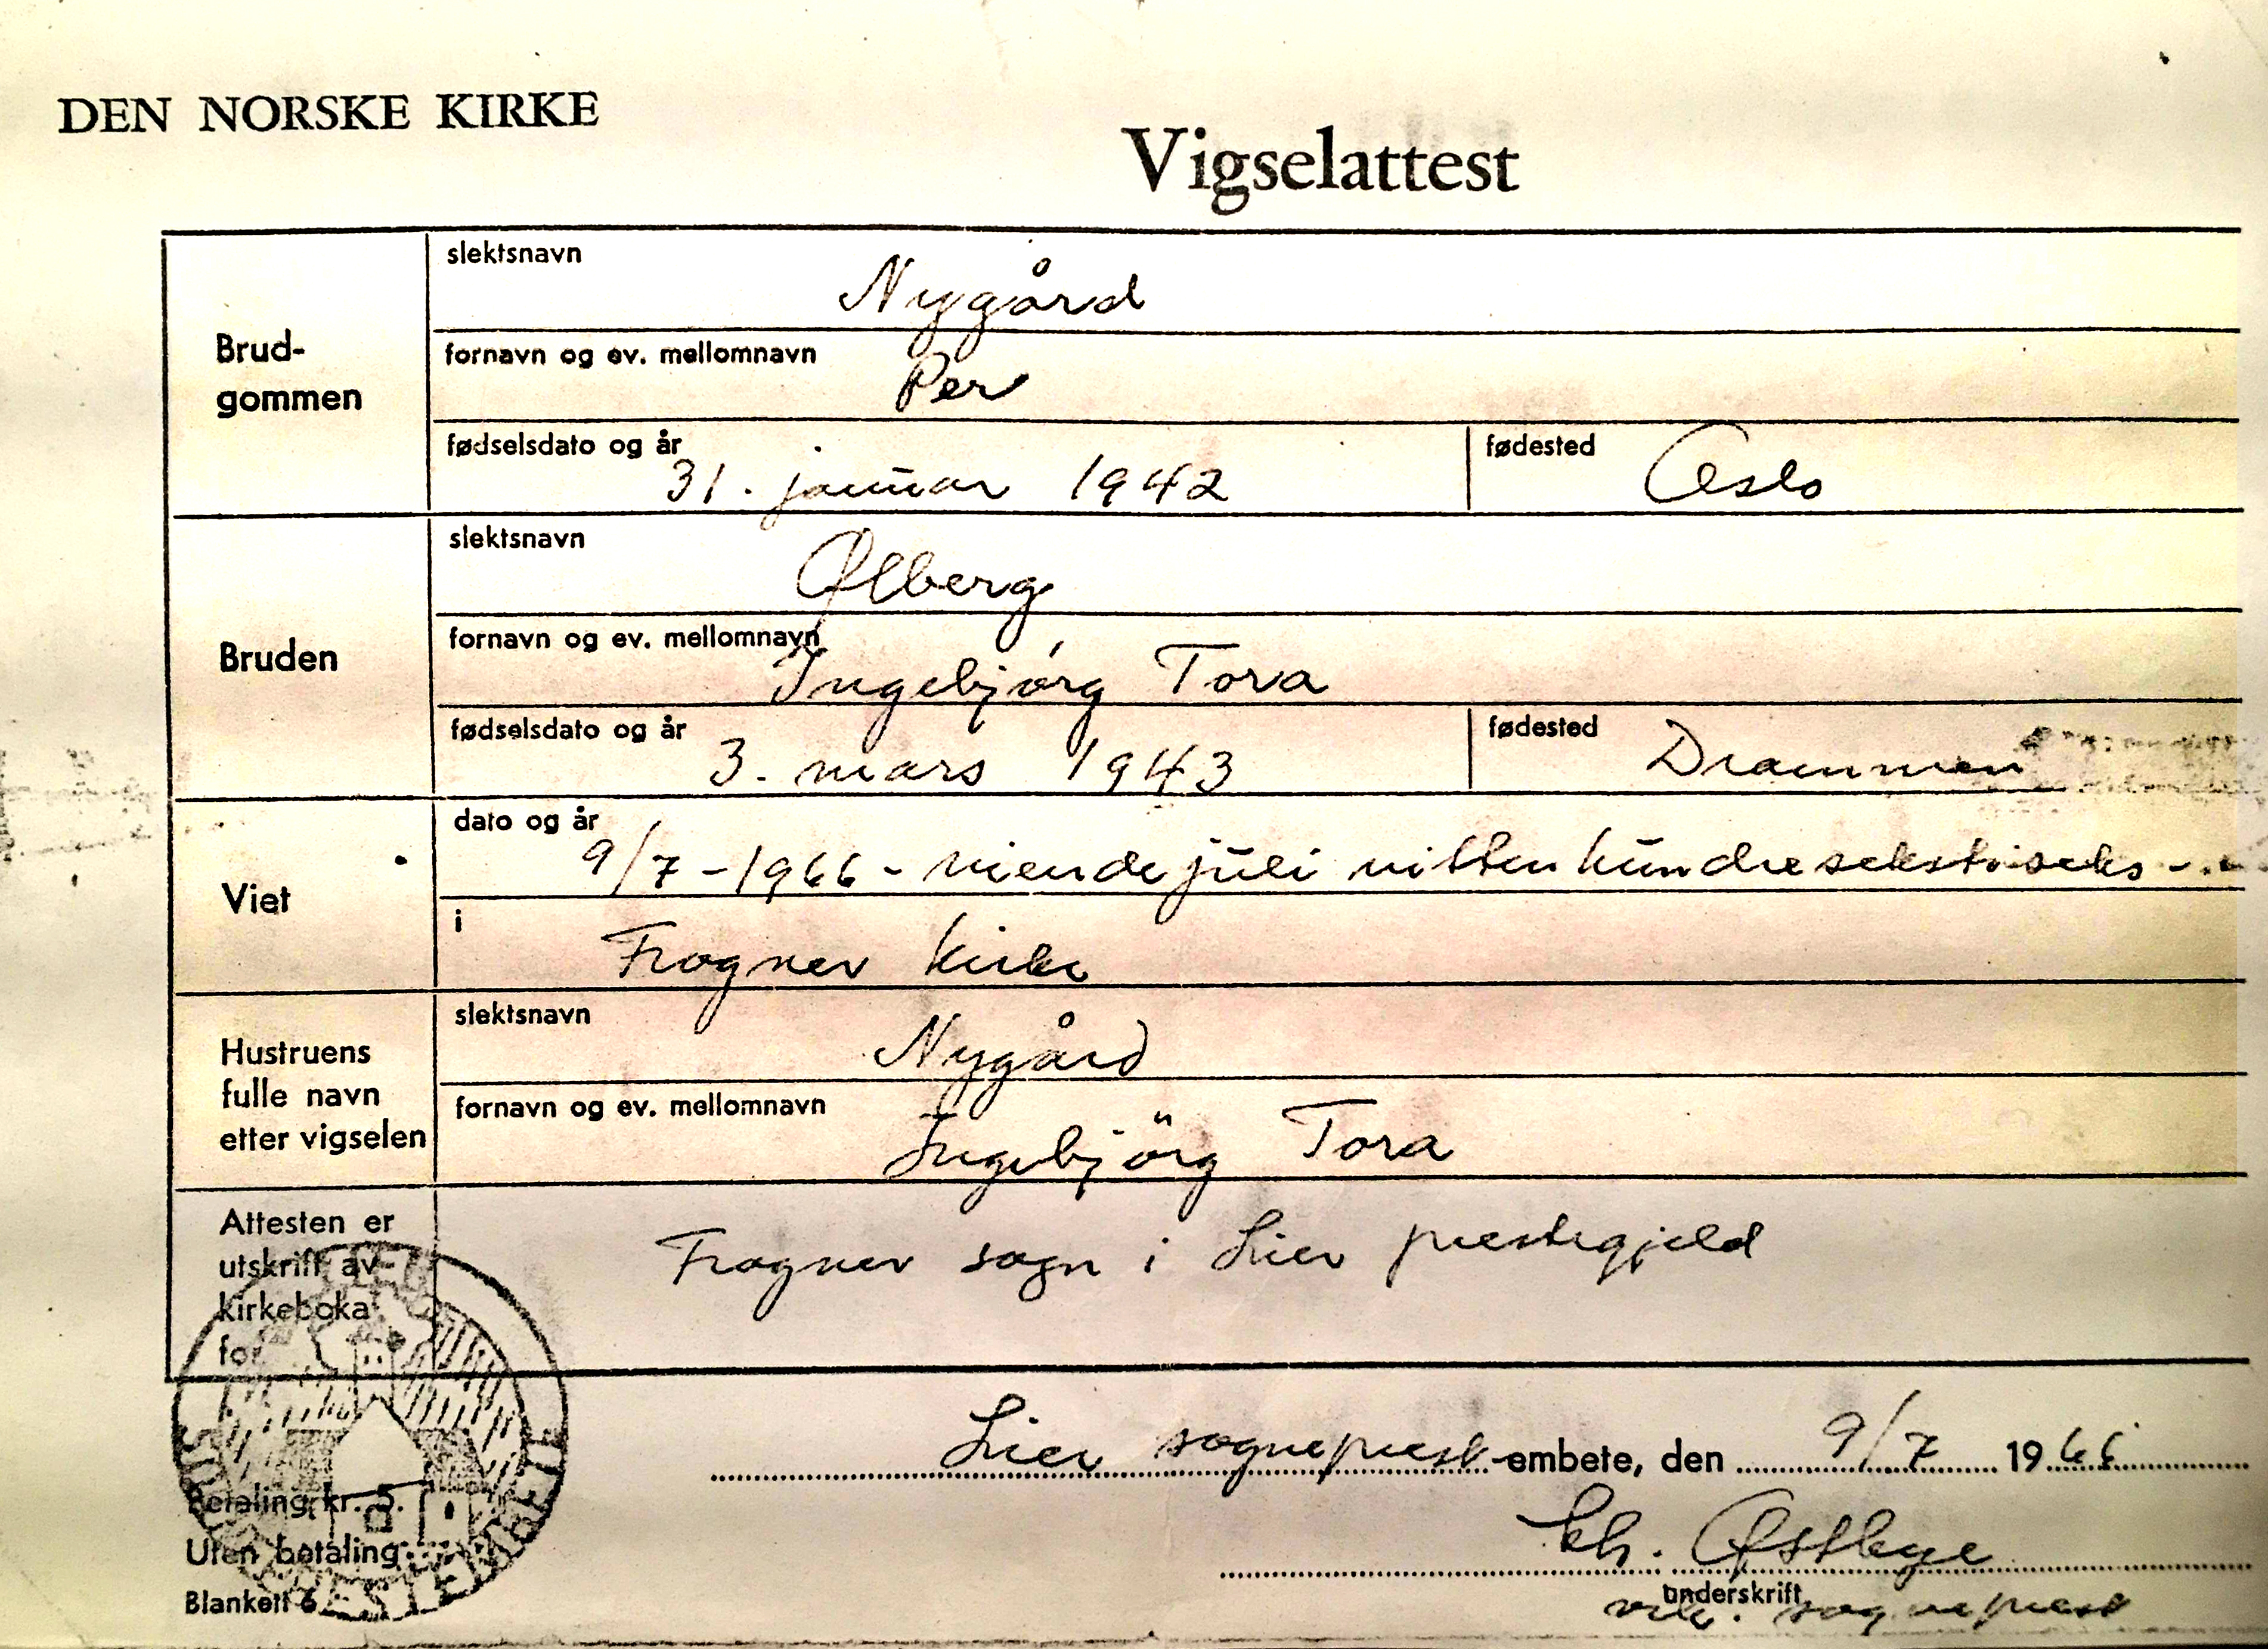 DEN NORSKE KIRKE
Vigselattest
Brud-
gommen
slektsnavn
Nygård
fornavn og ev. mellomnavn
Per
fødselsdato og år
31. januar 1942
fødested
Oslo
Bruden
slektsnavn
Ølberg
fornavn og ev. mellomnavn
Ingebjørg Tora
fødselsdato og år
3. mars 1943
fødested
Drammen
Viet
dato og år
9/7-1966 - niende juli nitten hundre sekstiseks -
i
Frogner kirke
Hustruens
fulle navn
etter vigselen
slektsnavn
Nygård
fornavn og ev. mellomnavn
Ingebjörg Tora
Attesten er
utskrift av
kirkeboka
for
Frogner sogn i Lier prestegjeld
Lier sogneprest-embete, den 9/7 1966
Betaling kr. 5.
Uten betaling
Blankett 6
Østbye
underskrift
sogneprest